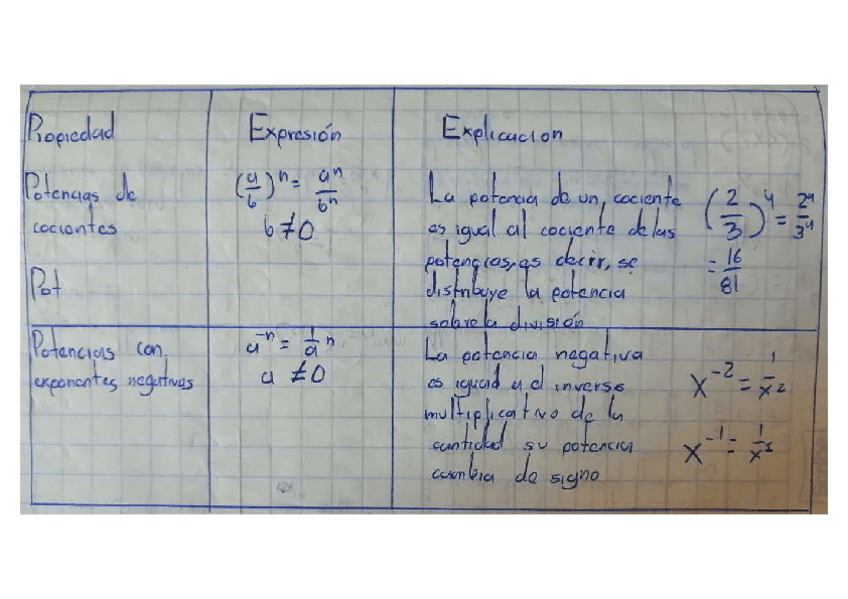 Propiedad Expresión Explicacion
Potencias de cocientes
(a/b)^n = a^n/b^n
b ≠ 0
La potencia de un cociente
es igual al cociente de las
potencias, es decir, se
distribuye la potencia
sobre la división
(2/3)^4 = 2^4/3^4
= 16/81
Pot
Potencias con
exponentes negativas
a^-n = 1/a^n
a ≠ 0
La potencia negativa
es iguad al inverso
multiplicativo de la
cantidad su potencia
cambia de signo
x^-2 = 1/x^2
x^-1 = 1/x^1